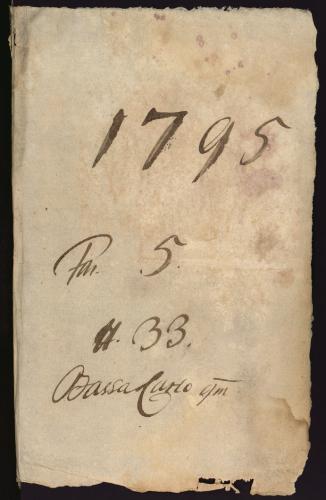 1795
Fas. 5.
#. 33.
Bassa Carlo qm